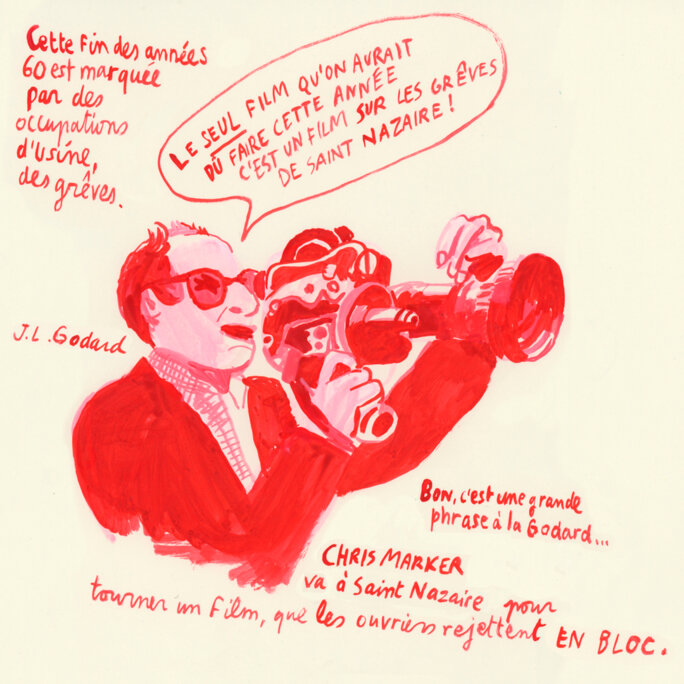 Cette fin des années
60 est marquée
par des
occupations
d'usine,
des grêves.
LE SEUL FILM QU'ON AURAIT
DÛ FAIRE CETTE ANNÉE
C'EST UN FILM SUR LES GRÊVES
DE SAINT NAZAIRE !
J.L. Godard
BON, c'est une grande
phrase à la Godard...
CHRIS MARKER
va à Saint Nazaire pour
tourner un film, que les ouvriers rejettent EN BLOC.